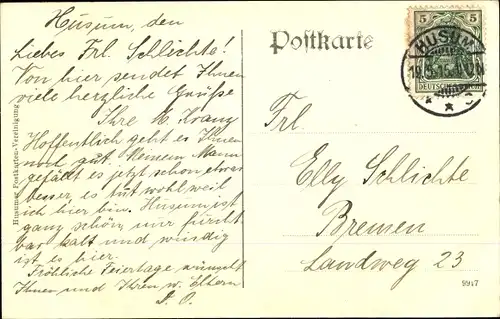 Husum, den
Liebes Frl. Schlichte!
Von hier sendet Ihnen
viele herzliche Grüße
Ihre M. Kranz
Hoffentlich geht es Ihnen
noch gut. Meinem Mann
gefällt es jetzt schon etwas
besser, es tut wohl weil
ich hier bin. Husum ist
ganz schön, nur furcht-
bar kalt und windig
ist es hier.
Fröhliche Feiertage wünscht
Ihnen und Ihren w. Eltern
D. O.
Husumer Postkarten-Vereinigung
Postkarte
5 5
DEUTSCHES REICH
HUSUM
Frl.
Elly Schlichte
Bremen
Landweg 23
9917